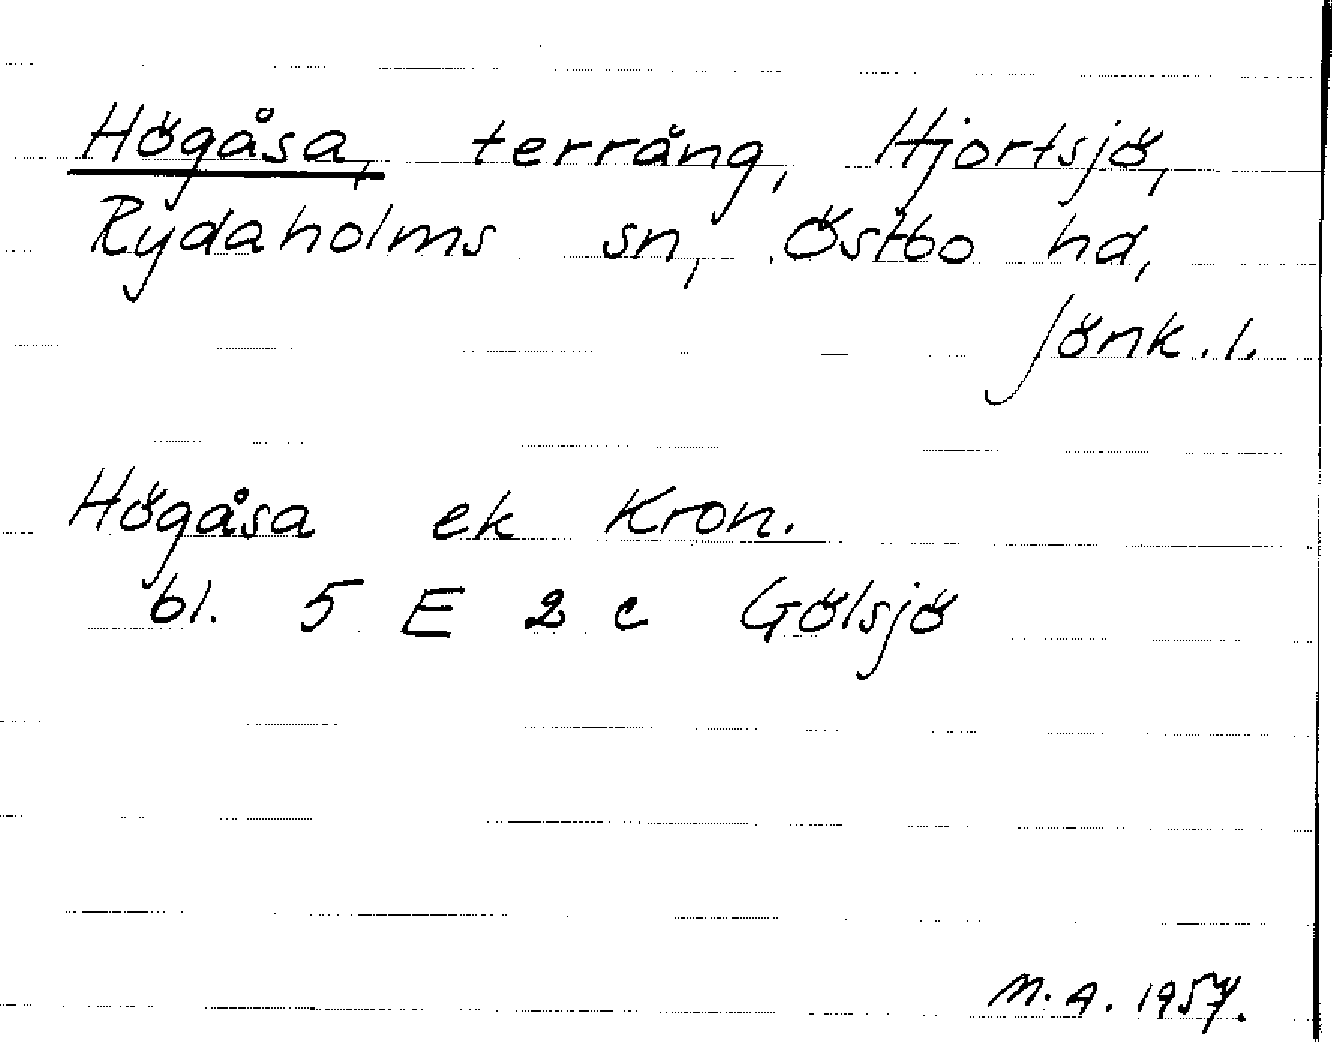 Högåsa, terräng, Hjortsjö,
Rydaholms sn, Östbo hd,
Jönk. l.
Högåsa ek Kron.
bl. 5 E 2 c Gölsjö
M. A. 1957.